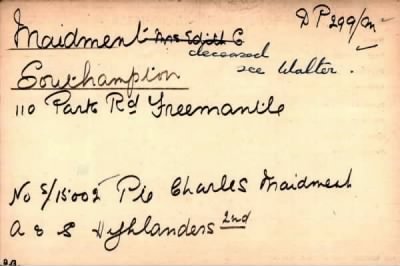 DP299/Am
Maidment Mrs Edith C
deceased
see Walter.
Southampton
110 Park Rd Freemantle
No S/15002 Pte Charles Maidment
A & S Highlanders 2nd